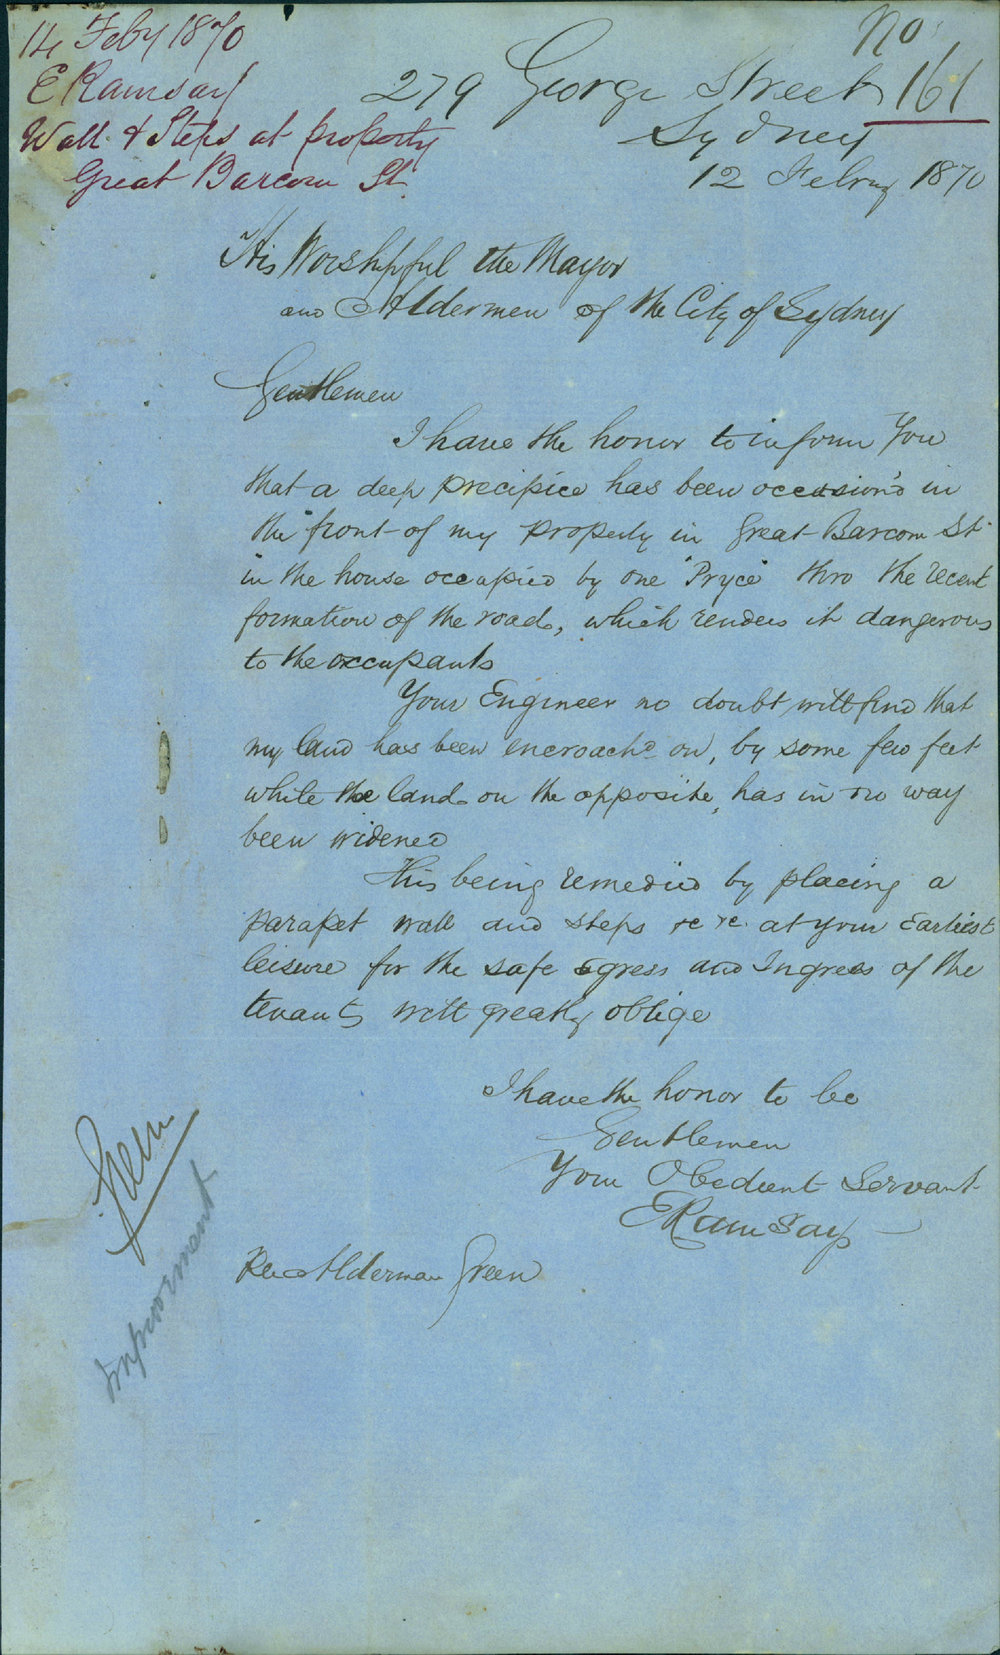 14 Feby 1870
E Ramsay
Wall & Steps at property
Great Barcom St.
No
161
279 George Street
Sydney
12 Februy 1870
His Worshipful the Mayor
and Aldermen of the City of Sydney
Gentlemen
I have the honor to inform You
that a deep precipice has been occasion'd in
the front of my property in Great Barcom St
in the house occupied by one "Pryce" thro the recent
formation of the road, which renders it dangerous
to the occupants
Your Engineer no doubt will find that
my land has been encroachd on, by some few feet
while the land on the opposite, has in no way
been widened
This being remedied by placing a
parapet wall and steps &c &c at your Earliest
leisure for the safe egress and Ingress of the
tenants will greatly oblige
I have the honor to be
Gentlemen
Your Obedient Servant
E Ramsay
Alderman Green
Green
Improvement